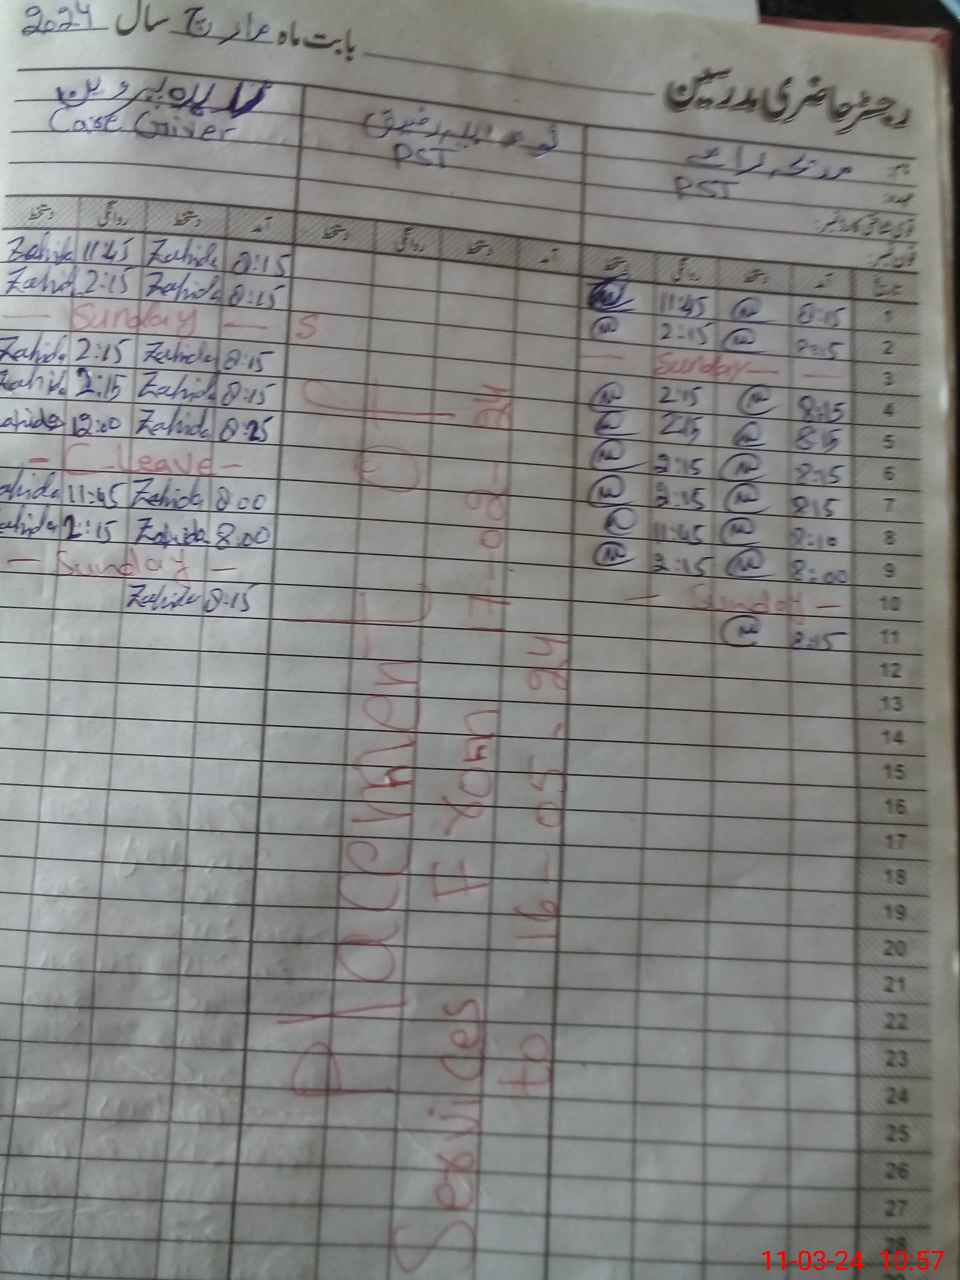 رجسٹر حاضری مدرسین
بابت ماہ مارچ سال 2024
PST
PST
Care Giver
تاریخ آمد دستخط روانگی دستخط آمد دستخط روانگی دستخط آمد دستخط روانگی دستخط
1 8:15 11:45 8:15 Zahida 11:45 Zahida
2 8:15 2:15 8:15 Zahida 2:15 Zahida
3 — Sunday — S — Sunday —
4 8:15 2:15 8:15 Zahida 2:15 Zahida
5 8:15 2:15 8:15 Zahida 2:15 Zahida
6 8:15 2:15 8:15 Zahida 12:00 Zahida
7 8:15 2:15 — C-Leave —
8 8:10 11:45 8:00 Zahida 11:45 Zahida
9 8:00 2:15 8:00 Zahida 2:15 Zahida
10 — Sunday — — Sunday —
11 8:15 8:15 Zahida
12
13
14
15
16
17
18
19
20
21
22
23
24
25
26
27
28
Placement
Services From
to 16-05-24
11-03-24 10:57